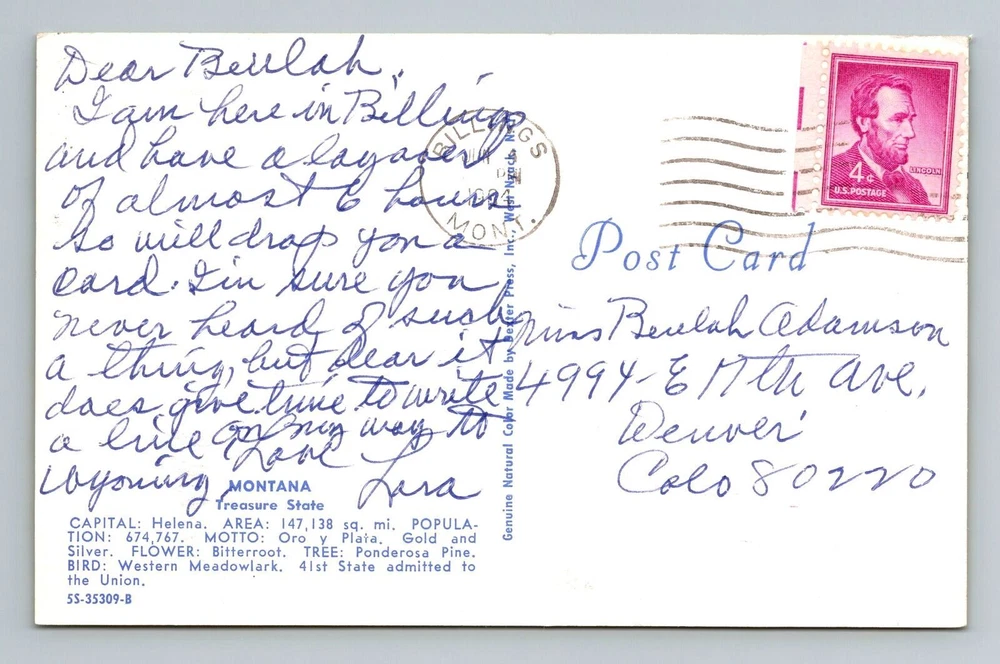 Dear Beulah,
I am here in Billings
and have a layover
of almost 6 hours
so will drop you a
card. I'm sure you
never heard of such
a thing, but dear it
does give time to write
a line on my way to
Wyoming Love Lora
MONTANA
Treasure State
CAPITAL: Helena. AREA: 147,138 sq. mi. POPULA-
TION: 674,767. MOTTO: Oro y Plata. Gold and
Silver. FLOWER: Bitterroot. TREE: Ponderosa Pine.
BIRD: Western Meadowlark. 41st State admitted to
the Union.
5S-35309-B
Genuine Natural Color Made by Dexter Press, Inc., West Nyack, N.
BILLINGS
MONT.
4¢
LINCOLN
U.S. POSTAGE
Post Card
Miss Beulah Adamson
4994 - E 17th Ave.
Denver
Colo 80220